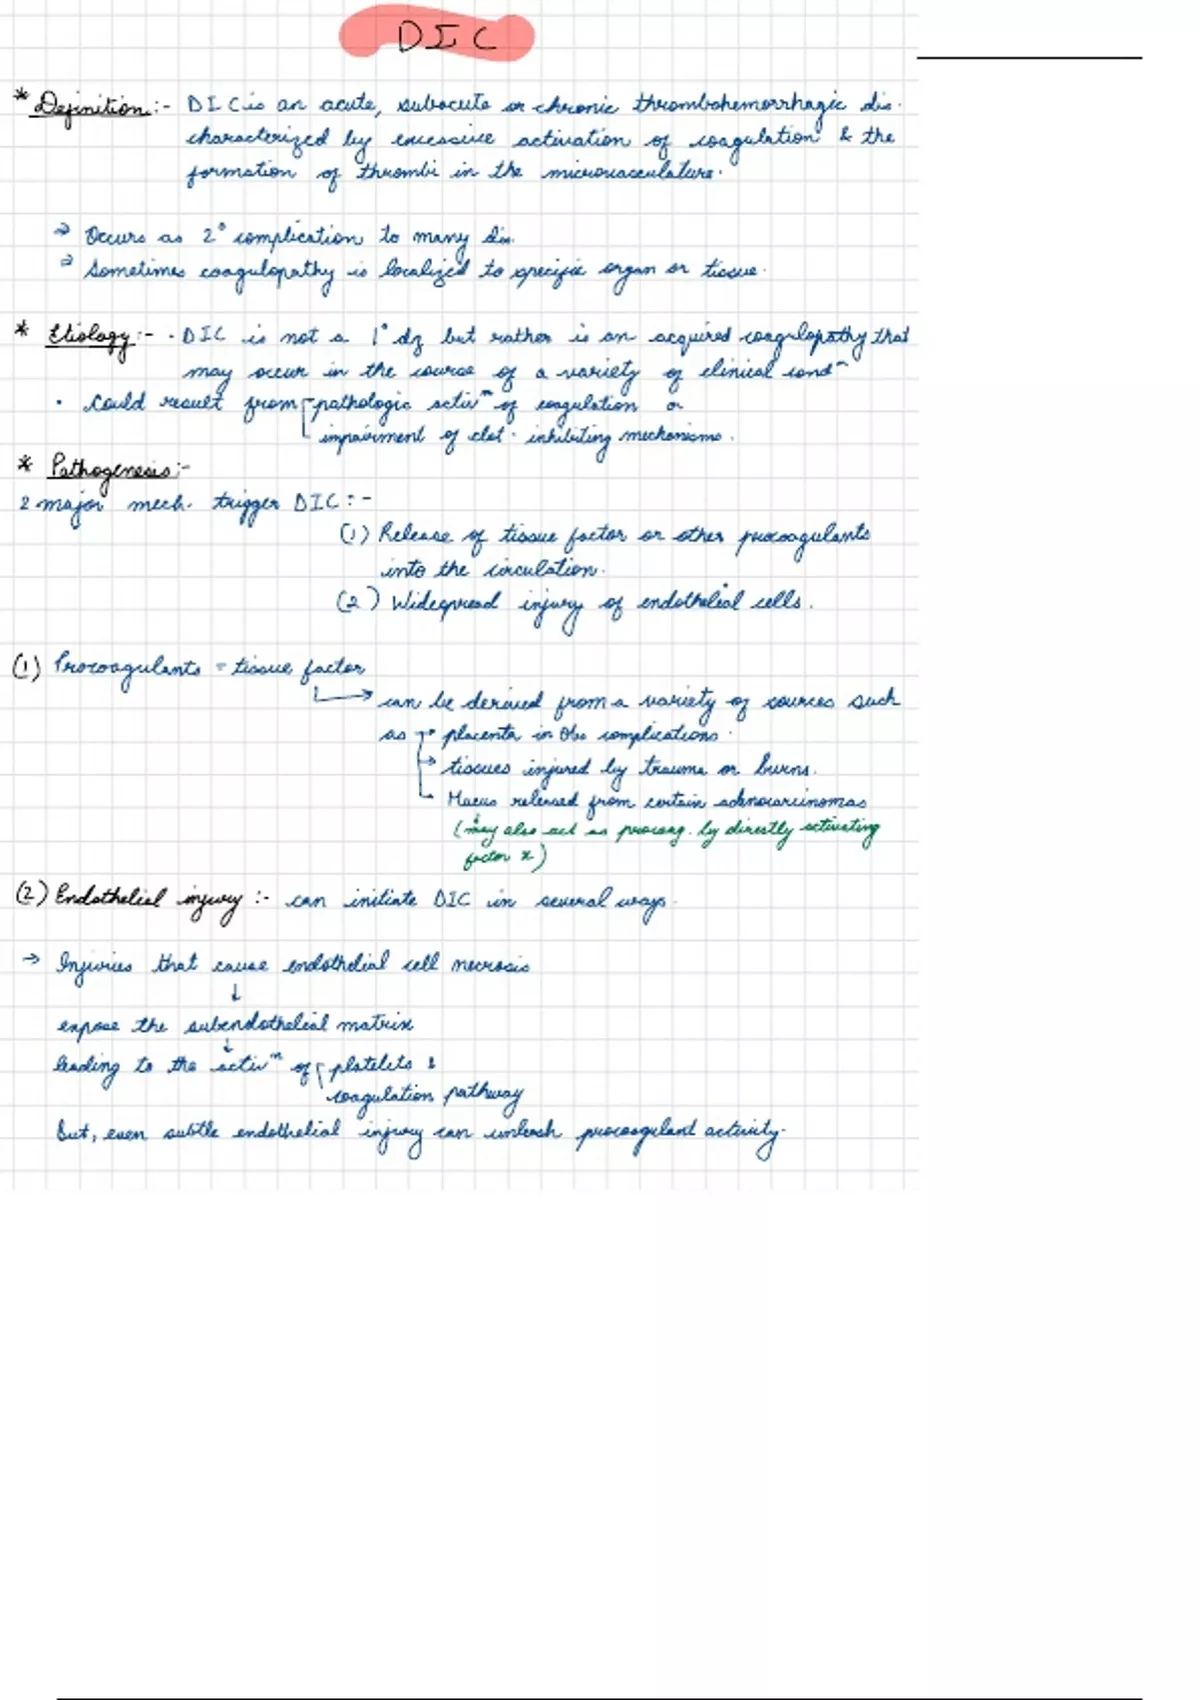 DIC
* Definition:- DIC is an acute, subacute or chronic thrombohemorrhagic dis.
characterized by excessive activation of coagulation & the
formation of thrombi in the microvasculature.
⇒ Occurs as 2° complication to many dis.
⇒ Sometimes coagulopathy is localized to specific organ or tissue.
* Etiology:- · DIC is not a 1° dz but rather is an acquired coagulopathy that
may occur in the course of a variety of clinical condⁿ
· Could result from pathologic activⁿ of coagulation or
impairment of clot-inhibiting mechanisms.
* Pathogenesis:-
2 major mech. trigger DIC:-
(1) Release of tissue factor or other procoagulants
into the circulation.
(2) Widespread injury of endothelial cells.
(1) Procoagulants = tissue factor
→ can be derived from a variety of sources such
as → placenta in Obs complications.
→ tissues injured by trauma or burns.
Mucus released from certain adenocarcinomas
(may also act as procoag. by directly activating
factor x)
(2) Endothelial injury:- can initiate DIC in several ways.
→ Injuries that cause endothelial cell necrosis
↓
expose the subendothelial matrix
↓
leading to the activⁿ of platelets &
coagulation pathway
But, even subtle endothelial injury can unleash procoagulant activity.